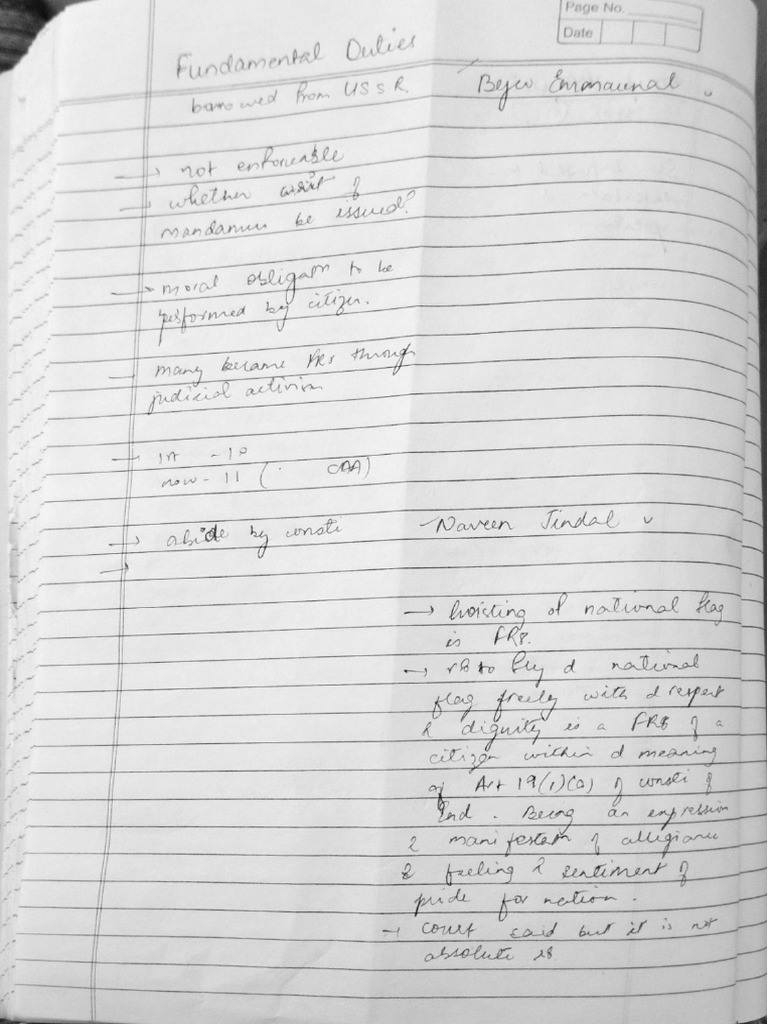 Page No.
Date
Fundamental Duties
borrowed from USSR.
→ not enforceable
→ whether writ of
mandamus be issued?
→ moral obligatn to be
performed by citizen.
→ many became FRs through
judicial activism
→ 10
now - 11 ( CAA)
→ abide by consti
→
Bejoe Emmaunal
Naveen Jindal
→ hoisting of national flag
is FRs.
→ rt to fly d national
flag freely with d respect
& dignity is a FRt of a
citizen within d meaning
of Art 19(1)(a) of consti of
Ind. Being an expression
& manifestatn of allegiance
& feeling & sentiment of
pride for nation.
→ court said but it is not
absolute